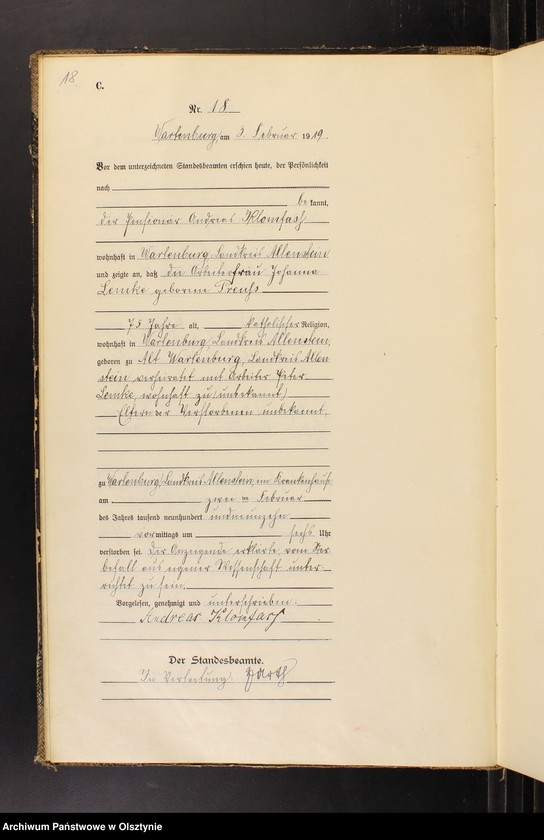 18.
C.
Nr. 18
Wartenburg am 3. Februar 1919.
Vor dem unterzeichneten Standesbeamten erschien heute, der Persönlichkeit
nach
be kannt,
der Pensionär Andreas Klomfass
wohnhaft in Wartenburg, Landkreis Allenstein
und zeigte an, daß die Arbeiterfrau Johanna
Lemke geborene Preuß
75 Jahre alt, katholischer Religion,
wohnhaft in Wartenburg, Landkreis Allenstein,
geboren zu Alt Wartenburg, Landkreis Allen
stein, verheiratet mit Arbeiter Peter
Lemke, wohnhaft zu (unbekannt)
Eltern der Verstorbenen unbekannt,
zu Wartenburg, Landkreis Allenstein, im Krankenhause
am zwei ten Februar
des Jahres tausend neunhundert undneunzehn
vor mittags um sechs Uhr
verstorben sei. Der Anzeigende erklärte, vom Ster
befall aus eigener Wissenschaft unter
richtet zu sein.
Vorgelesen, genehmigt und unterschrieben.
Andreas Klomfass
Der Standesbeamte.
In Vertretung
Archiwum Państwowe w Olsztynie